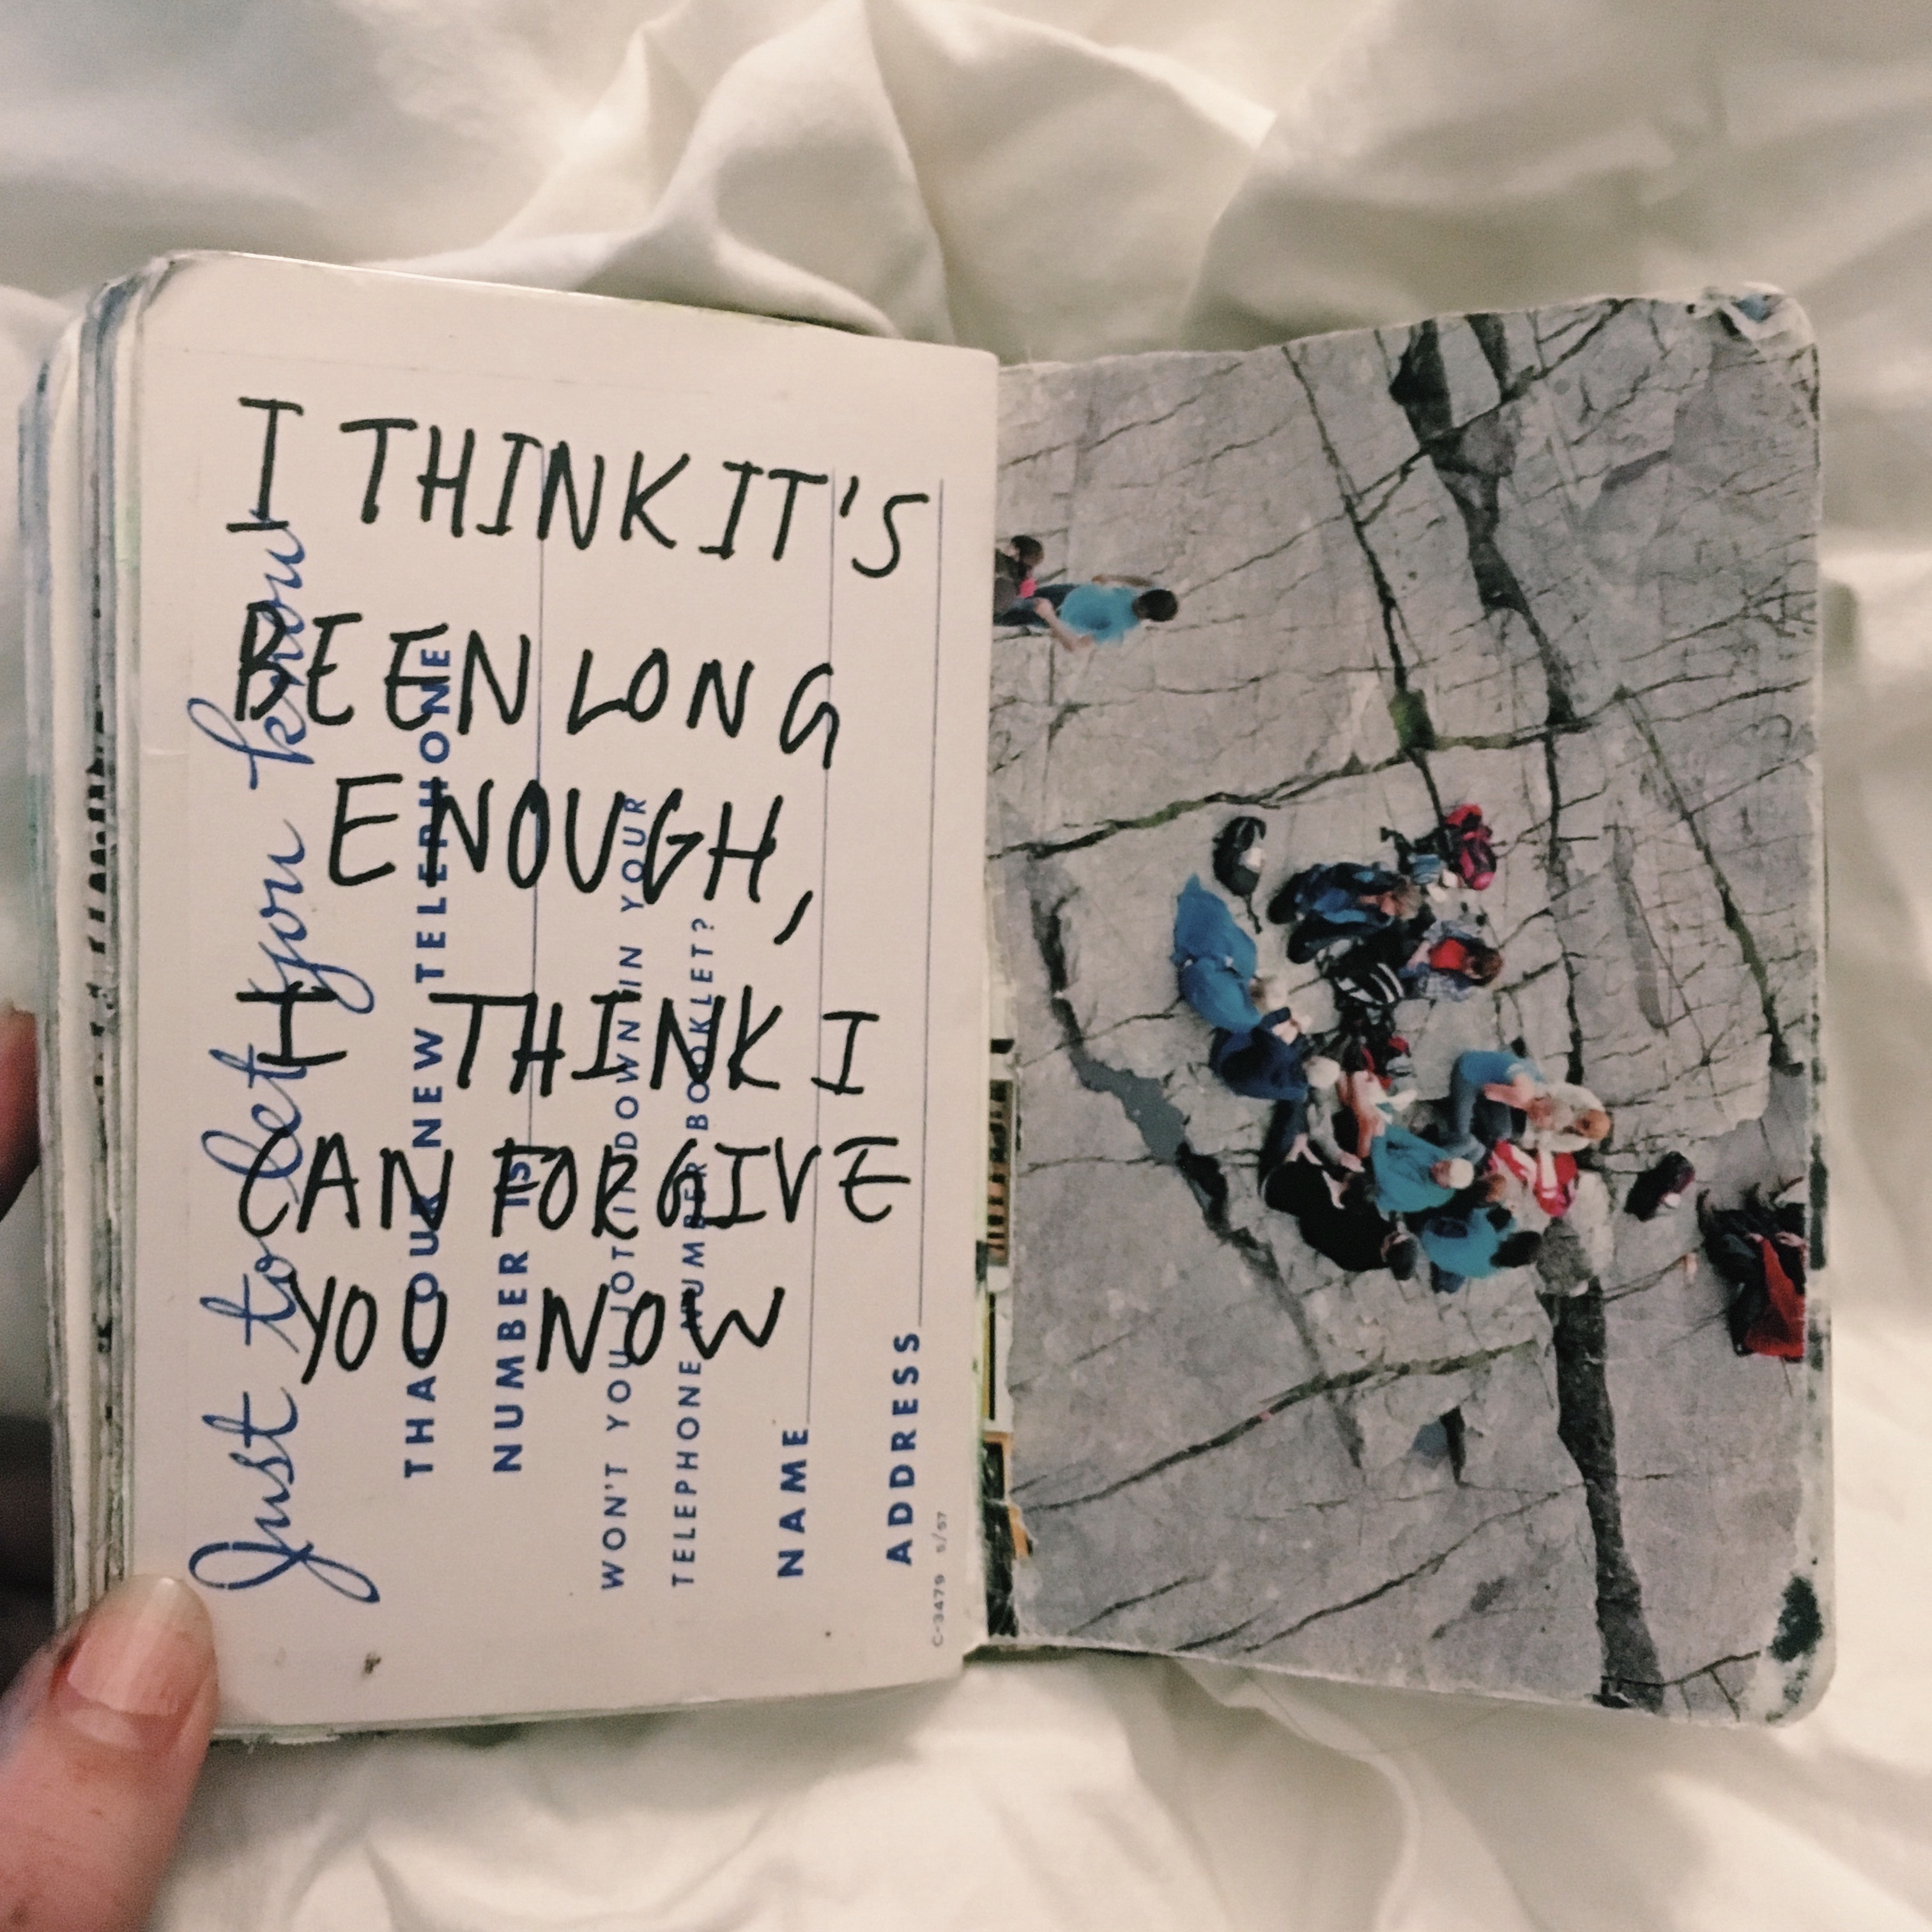 I THINK IT'S
BEEN LONG
ENOUGH,
I THINK I
CAN FORGIVE
YOU NOW
Just to let you know
THAT OUR NEW TELEPHONE
NUMBER IS
WON'T YOU JOT IT DOWN IN YOUR
TELEPHONE NUMBER BOOKLET?
NAME
ADDRESS
C-3479 5/57